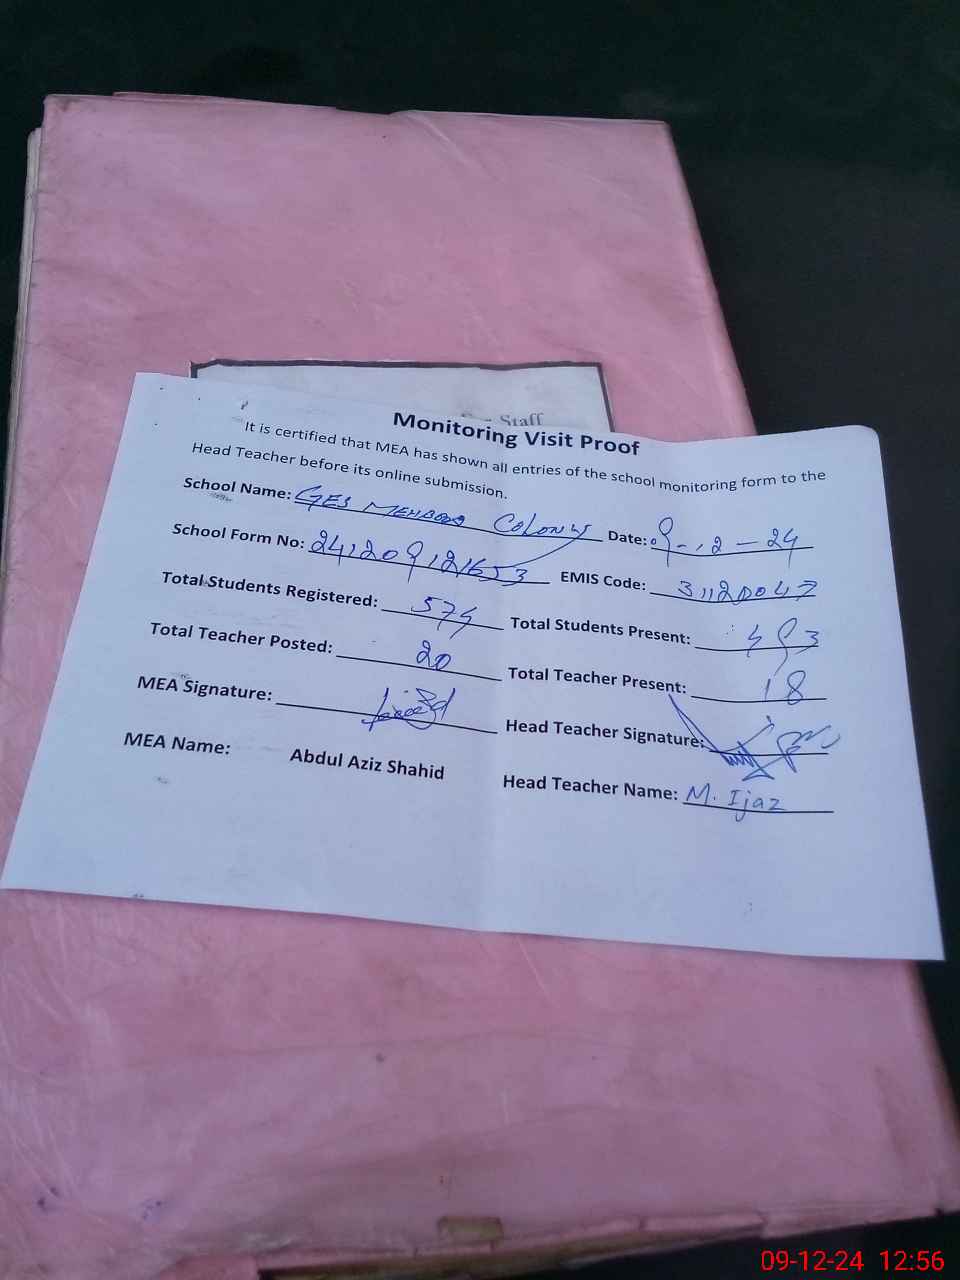 Staff
Monitoring Visit Proof
It is certified that MEA has shown all entries of the school monitoring form to the
Head Teacher before its online submission.
School Name: GES MEHBOOB COLONY Date: 09-12-24
School Form No: 241209121653 EMIS Code: 31120047
Total Students Registered: 574 Total Students Present: 493
Total Teacher Posted: 20 Total Teacher Present: 18
MEA Signature: Head Teacher Signature:
MEA Name: Abdul Aziz Shahid Head Teacher Name: M. Ijaz
09-12-24 12:56